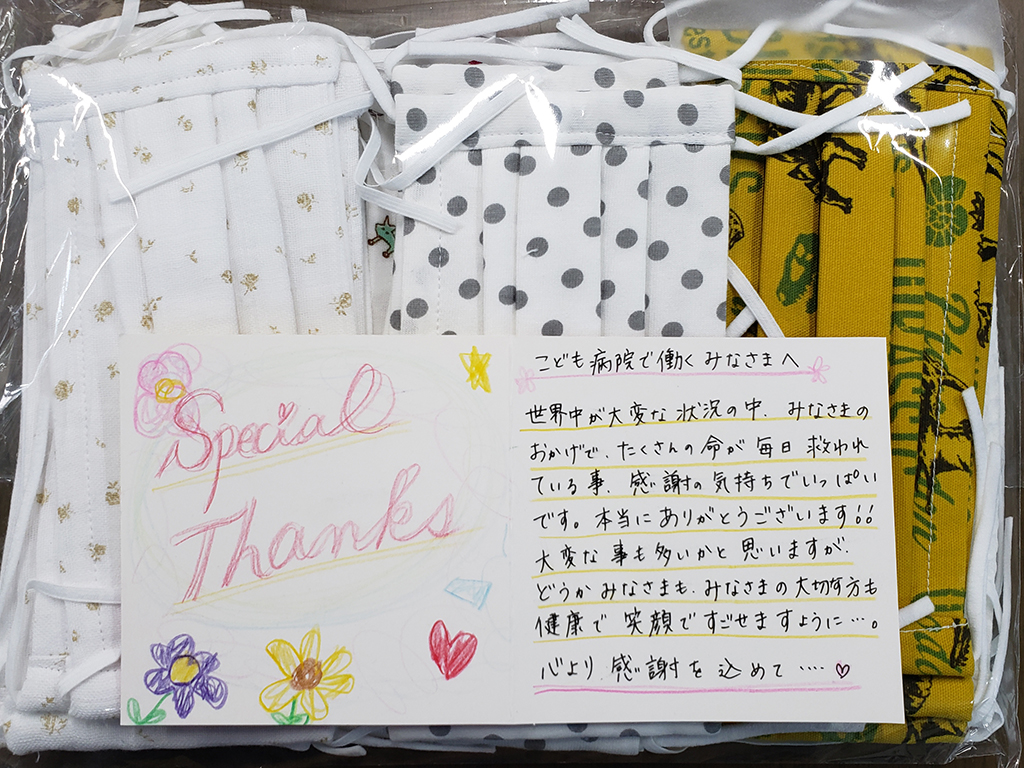 Special
Thanks
こども病院で働くみなさまへ
世界中が大変な状況の中、みなさまの
おかげで、たくさんの命が毎日救われ
ている事、感謝の気持ちでいっぱい
です。本当にありがとうございます!!
大変な事も多いかと思いますが、
どうかみなさまも、みなさまの大切な方も
健康で笑顔ですごせますように…。
心より感謝を込めて‥‥♡